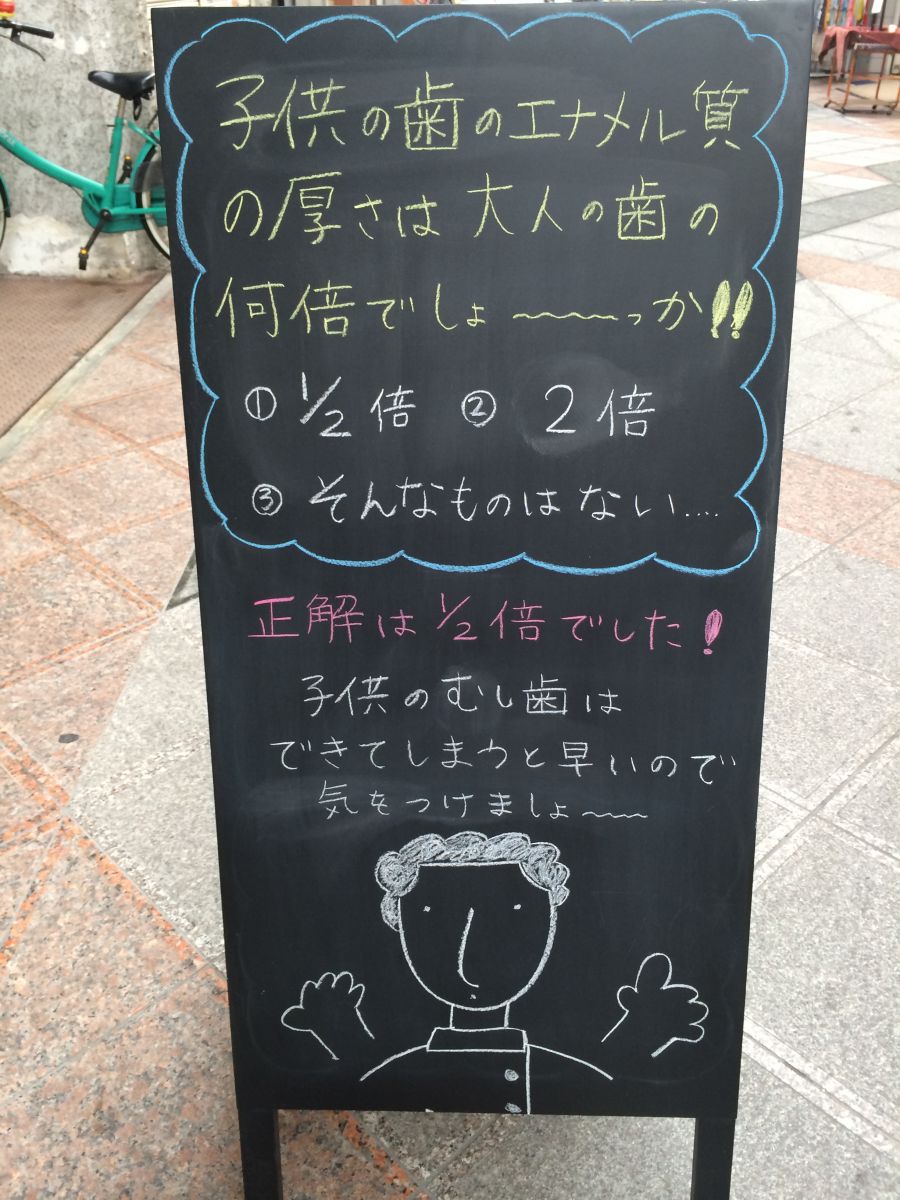 子供の歯のエナメル質
の厚さは大人の歯の
何倍でしょ〜〜〜っか!!
① 1/2倍 ② 2倍
③ そんなものはない....
正解は1/2倍でした!
子供のむし歯は
できてしまうと早いので
気をつけましょ〜〜